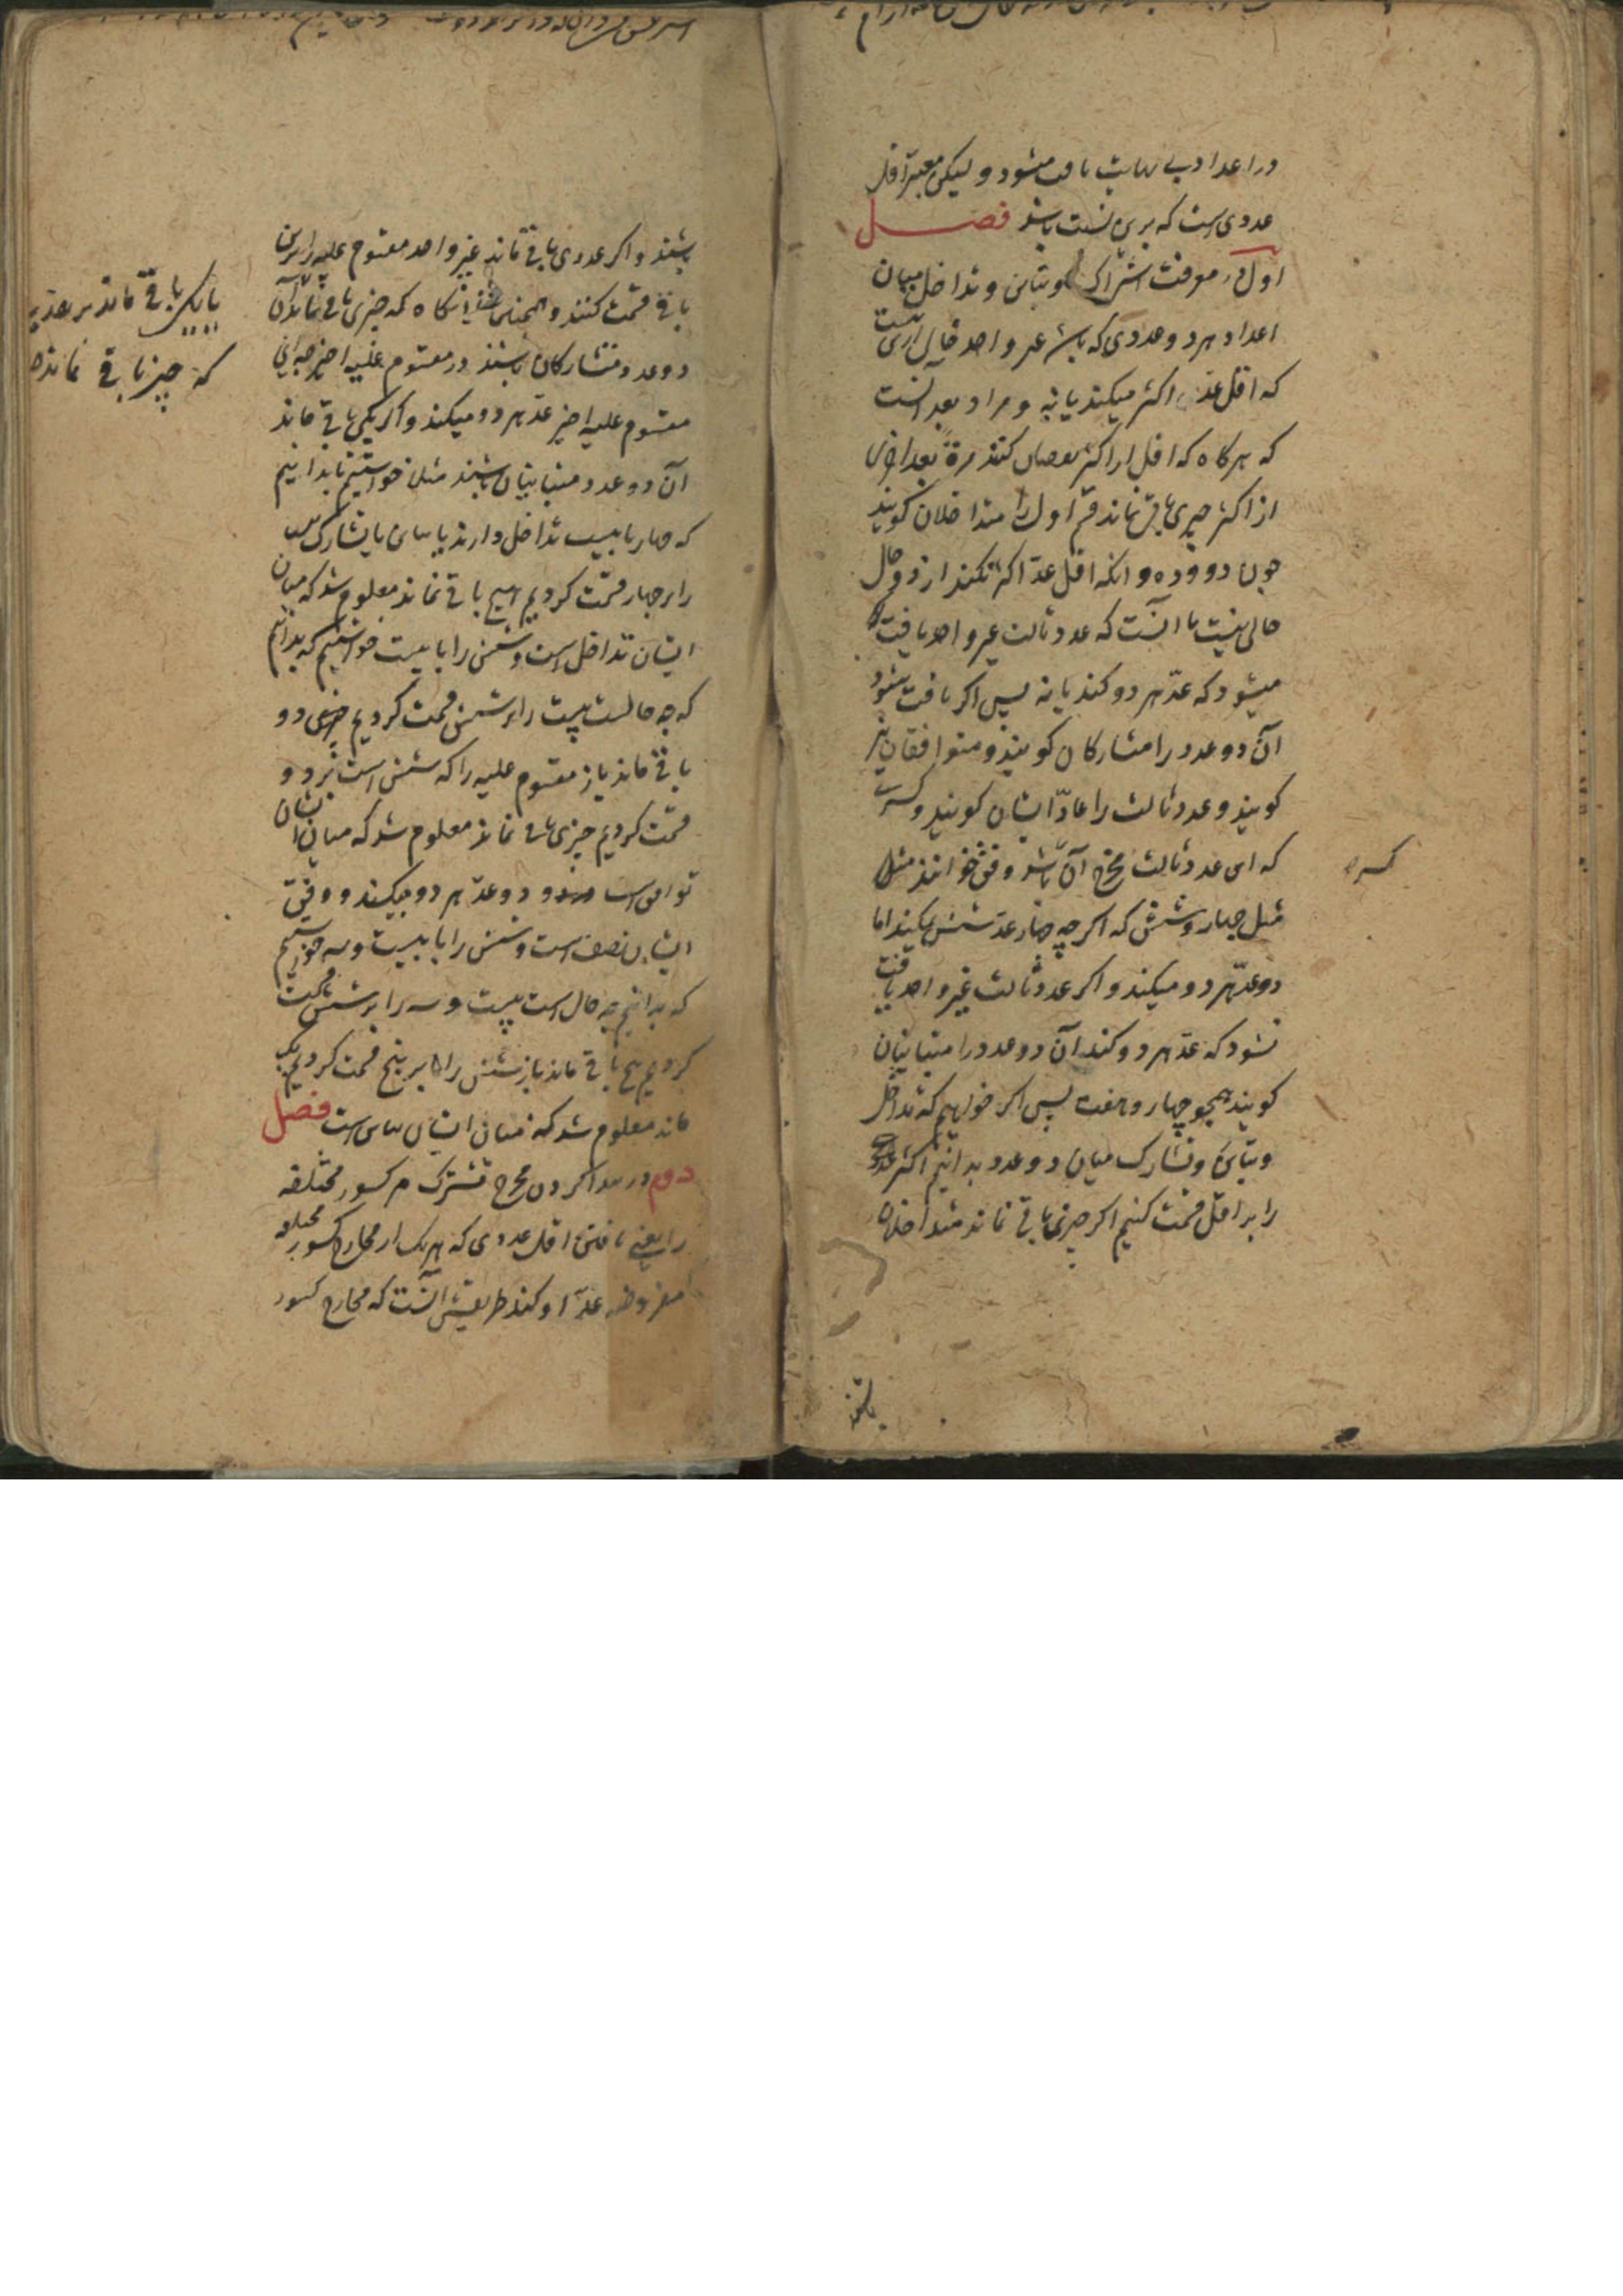 در اعداد بی نهایت یافت میشود و لیکن معتبر اقل
عددی است که برین نسبت باشد فصل
اول در معرفت اشتراک و تباین و تداخل میان
اعداد هر دو عددی که باشد غیر واحد خالی ازین نیست
که اقل عدّ اکثر میکند یا نه و مراد بعد آنست
که هرگاه که اقل را از اکثر نقصان کنند مرة بعد اخری
از اکثر چیزی باقی نماند قسم اول را متداخلان کویند
چون دو و ده و آنکه اقل عدّ اکثر نکند از دو حال
خالی نیست یا آنست که عدد ثالث غیر واحد یافت
میشود که عدّ هر دو کند یا نه پس اکر یافت شود
آن دو عدد را متشارکان کویند و متوافقان نیز
کویند و عدد ثالث را عادّ ایشان کویند و کسری
که این عدد ثالث مخرج آن باشد وفق خوانند مثل
مثل چهار و شش که اکر چه چهار عدّ شش نمیکند اما
دو عدّ هر دو میکند و اکر عدد ثالث غیر واحد یافت
نشود که عدّ هر دو کند آن دو عدد را متباینان
کویند همچو چهار و هفت پس اکر خواهیم که تداخل
و تباین و تشارک میان دو عدد بدانیم اکثر
را بر اقل قسمت کنیم اکر چیزی باقی نماند متداخلان
کسره
باشند
باشند و اکر عددی باقی ماند غیر واحد مقسوم علیه را برین
باقی قسمت کنند و همچنین تا آنکاه که چیزی باقی نماند آن
دو عدد متشارکان باشند و مقسوم علیه اخیر
مقسوم علیه اخیر عدّ هر دو میکند و اکر یکی باقی ماند
آن دو عدد متباینان باشند مثلا خواستیم تا بدانیم
که چهار با بیست تداخل دارند یا تباین یا تشارک بیست
را بر چهار قسمت کردیم هیچ باقی نماند معلوم شد که میان
ایشان تداخل است و شش را با بیست خواستیم که بدانیم
که چه حالست بیست را بر شش قسمت کردیم دو
باقی ماند باز مقسوم علیه را که شش است بر دو
قسمت کردیم چیزی باقی نماند معلوم شد که میان ایشان
توافق است و دو عدّ هر دو میکند و وفق
ایشان نصف است و شش را با بیست و سه خواستیم
که بدانیم چه حال است بیست و سه را بر شش قسمت
کردیم پنج باقی ماند باز شش را بر پنج قسمت کردیم یک
ماند معلوم شد که میان ایشان تباین است فصل
دوم در پیدا کردن مخرج مشترک م کسور مختلفه
را یعنی یافتن اقل عددی که هر یک از مخارج کسور مختلفه
مفروضه عدّ او کند طریقش آنست که مخارج کسور
یا یکی باقی ماند بر تقدیر
که چیز باقی نمانده